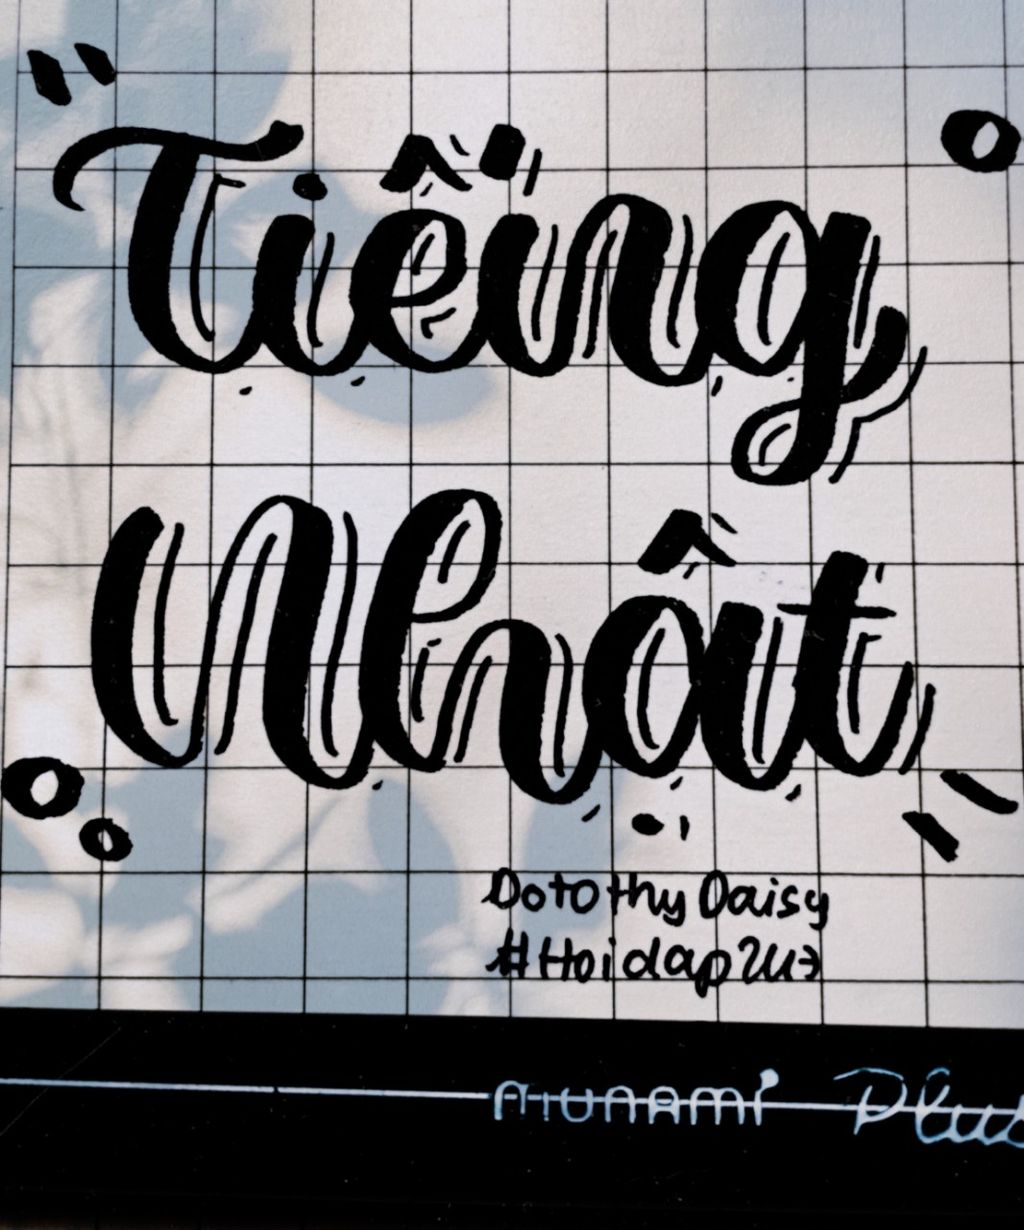 Tiếng
Nhật
Dotothy Daisy
#Hoidap247
MUNAMi Plus